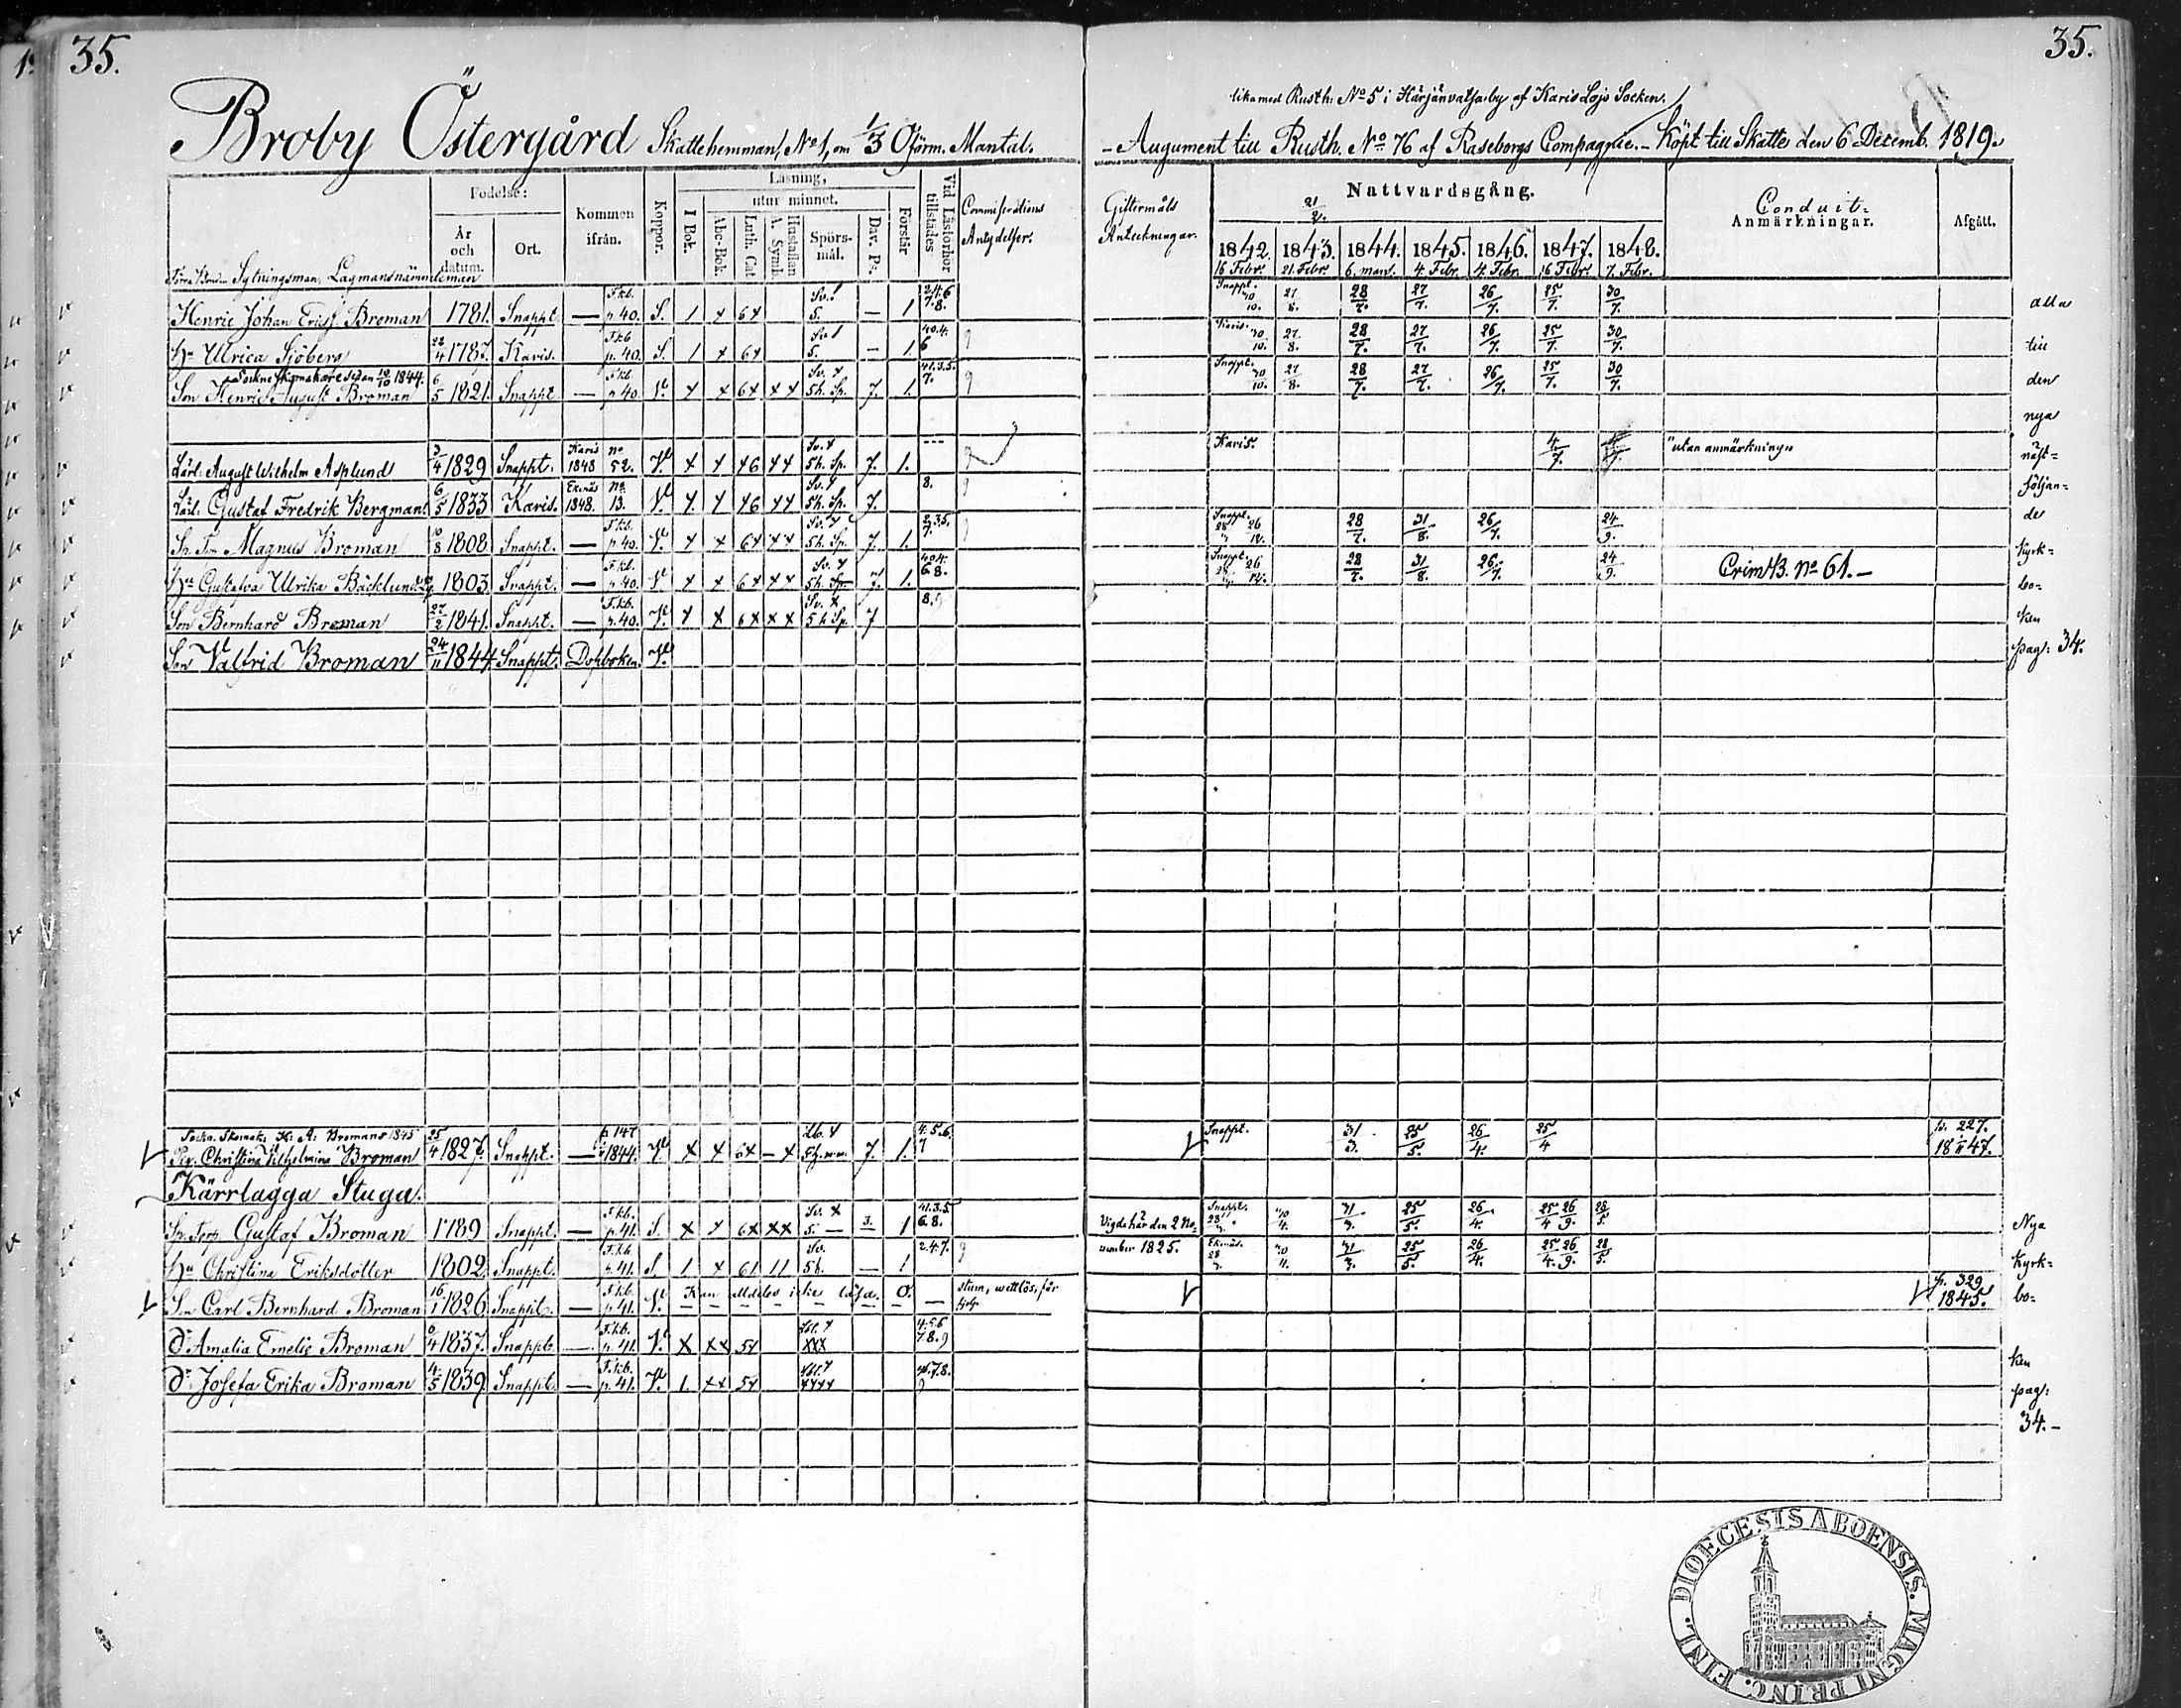 35.
35.
likamed Rusth: No 5 i Härjänvatsa by af Karis Lojo Socken.
Broby Östergård Skattehemman, No 1, om 1/3 Oförm. Mantal.
- Augument till Rusth. No 76 af Raseborgs Compagnie. - Köpt till Skatte den 6 Decemb. 1819.
Födelse: År och datum. Ort.
Kommen ifrån.
Koppor.
Läsning, I Bok. utur minnet. Abc-Bok. Luth. Cat. Hustaflan A. Symb. Spörsmål. Dav. Ps. Förstår
Vid Läsförhör tillstädes
Giftermåls Anteckningar.
Nattvardsgång.
21/2.
1842. 1843. 1844. 1845. 1846. 1847. 1848.
16 Febr. 21. Febr. 6. mars. 4. Febr. 4. Febr. 16 Febr. 7. Febr.
Conduit= Anmärkningar.
Afgått.
Sytningsman, Lagmansnämndeman
Henric Johan Ericss. Broman 1781. Snappt. — F.kb. p. 40. S. 1 x 6x Sv. 1 5. — 1 2.4.6 7.8. Snappt. 30/10. 27/8. 28/7. 27/7. 26/7. 25/7. 30/7.
Hu Ulrica Sjöberg 22/4 1787. Karis. F.kb p. 40. S. 1 x 6x 5. — 1. 40.4. 6 Karis. 30/10. 27/8. 28/7. 27/7. 26/7. 25/7. 30/7.
Sockne Skomakare sedan 10/10 1844.
Son Henric August Broman 6/5 1821. Snappt. — F.kb. p. 40 V. x x 6x x x Sv. x 5h. Sp. 7. 1. 41.3.5. 7. Snappt. 30/10. 27/8. 28/7. 27/7. 26/7. 25/7. 30/7.
Lärl. August Wilhelm Asplund 3/4 1829 Snappt. Karis 1848 no 52. V. x x x6 x x Sv. x 5h. Sp. 7. 1. Karis. 4/7. "utan anmärkning"
Lärl. Gustaf Fredrik Bergman 6/5 1833 Karis. Ekenäs 1848. No. 13. V. x x x6 x x Sv. x 5h. Sp. 7. 8.
Magnus Broman 10/8 1808. Snappt. — F.kb. p. 40. V. x x 6x x x Sv. x 5h. Sp. 7. 1. 2.3.5. 7. Snappt. 26/12. 28/7. 31/8. 26/7. 24/9.
Hu Gustafva Ulrika Bäcklund 1803. Snappt. — F.kb. p. 40. V. x x 6x x x Sv. x 5h. Sp. 7. 1. 40.4. 6.8. Snappt. 26/12. 28/7. 31/8. 26/7. 24/9. Crim. B. No 61. -
Son Bernhard Broman 27/2 1841. Snappt. — F.kb. p. 40. V. x x 6x x x Sv. x 5h Sp. 7 8.
Son Valfrid Broman 24/11 1844. Snappt. Dopboken V.
alla
till
den
nya
näst=
följan=
de
kyrk=
bo=
ken
pag: 34.
Sockn. Skomak: H: A: Bromans 1845
Christina Vilhelmina Broman 25/4 1827. Snappt. — p 147 1844. V. x x 6x — x 7. 1. 4.5.6. 7 Snappt. 31/3. 25/5. 26/4. 25/4 p. 227. 1847.
Kärrlagga Stuga.
Gustaf Broman 1789 Snappt. — F.kb. p. 41. S. x x 6x x x Sv. x 5. — 3. 1 41.3.5 6.8. Vigde här den 2 No= Snappt. 30/4. 31/3. 25/5. 26/4. 25/4 26/9. 28/5.
Hu Christina Eriksdotter 1802. Snappt. F.kb. p. 41. S. 1. x 61 11 Sv. 5h. — 1 2.4.7. vember 1825. Ekenäs. 31/3. 25/5. 26/4. 25/4. 26/9. 28/5.
Son Carl Bernhard Broman 16/1 1826. Snappt. — F.kb. p. 41. V. Kan alldeles icke läsa. 0. — stum, vettlös, får hjelp p. 329 1845.
dr Amalia Emelie Broman 6/4 1837. Snappt. — F.kb. p. 41. V. x x x 5x xxx 4.5.6 7.8.9
dr Josefa Erika Broman 4/5 1839. Snappt. — F.kb. p. 41. V. 1. x x 5x xxxx 9
Nya
kyrk=
bo=
ken
pag:
34. -
DIOECESIS ABOENSIS. MAGNI PRINC. FINL.